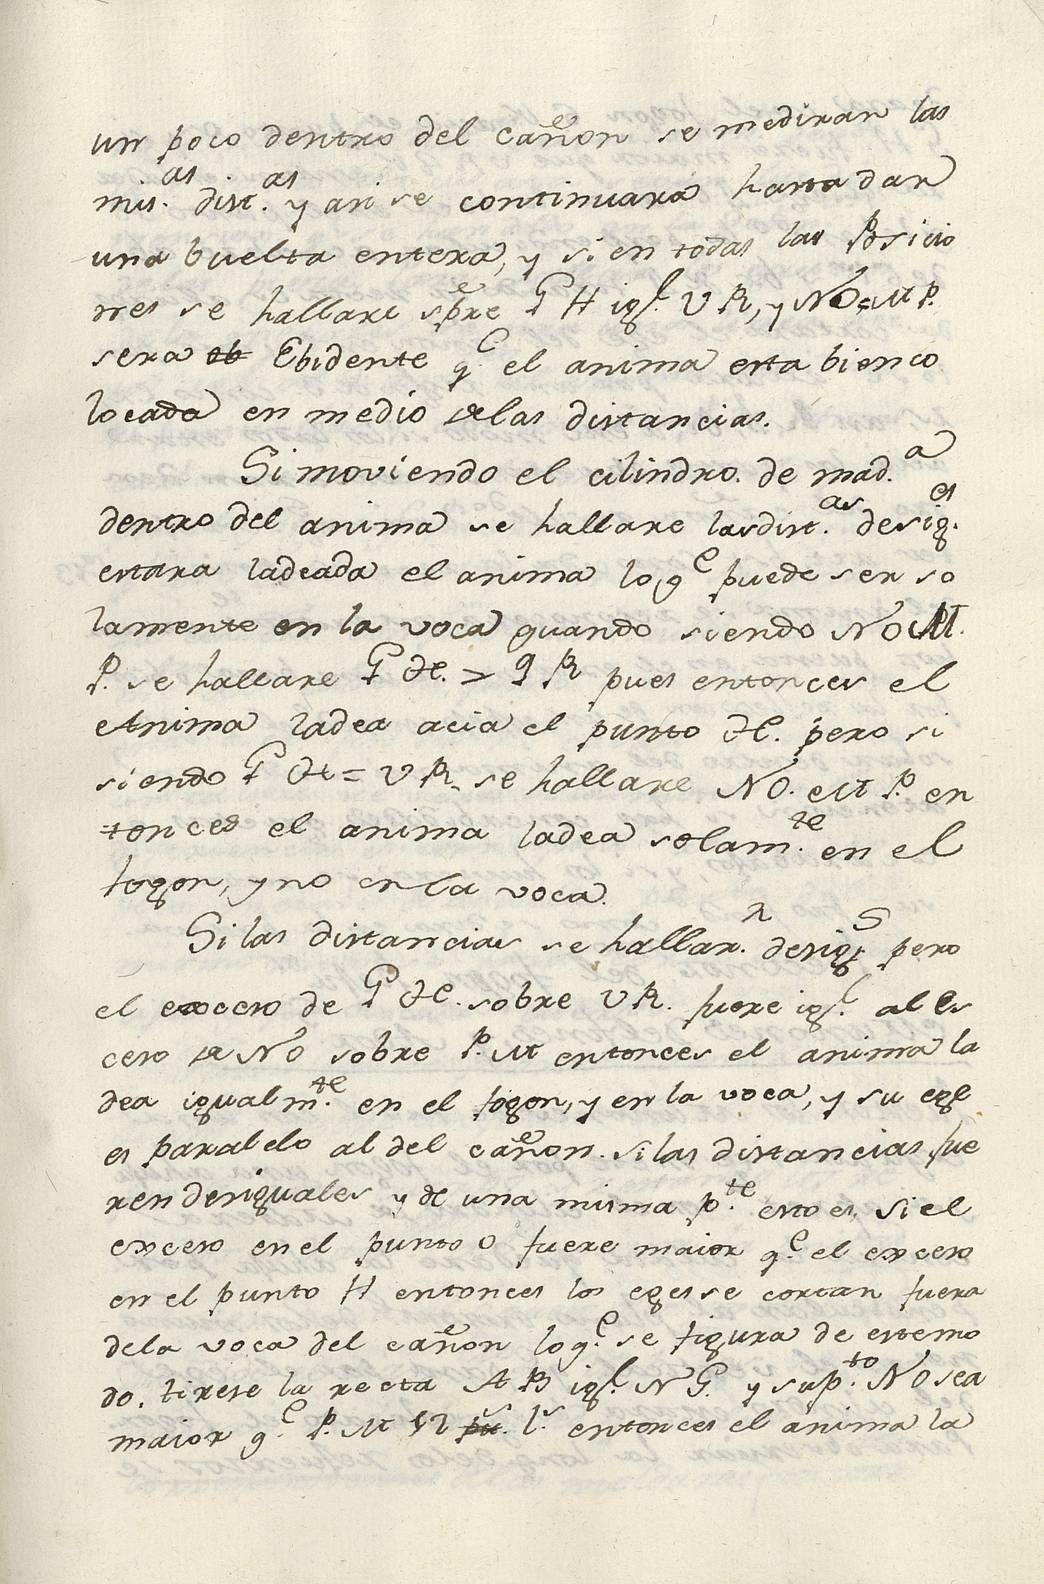 un poco dentro del cañon se mediran las
mis.as dist.as y asi se continuara hasta dar
una buelta entera, y si en todas las Posicio
nes se hallare spre G H igl. V R, y NO = M P.
sera eb Ebidente qe el anima esta bien co
locada en medio de las distancias.
Si moviendo el cilindro. de mad.a
dentro del anima se hallare las dist.as desig.es
estara ladeada el anima lo qe puede ser so
lamente en la voca quando siendo NO M.
P. se hallare G H. > V R pues entonces el
Anima ladea acia el punto H. pero si
siendo G H = V R. se hallare NO. M P. en
tonces el anima ladea solam.te en el
fogon, y no en la voca.
Si las distancias se hallar.n desigs pero
el excero de G H. sobre V R. fuere igl. al es
cero de NO sobre P. M entonces el anima la
dea igualm.te en el fogon, y en la voca, y su ege
es paralelo al del cañon. si las distancias fue
ren desiguales y de una misma p.te esto es, si el
excero en el punto O fuere maior q.e el excero
en el punto H entonces los eges se cortan fuera
de la voca del cañon lo q.e se figura de este mo
do. tirese la recta A B igl. N G. y sup.to NO sea
maior q.e P. M 12 pu. l.s entonces el anima la